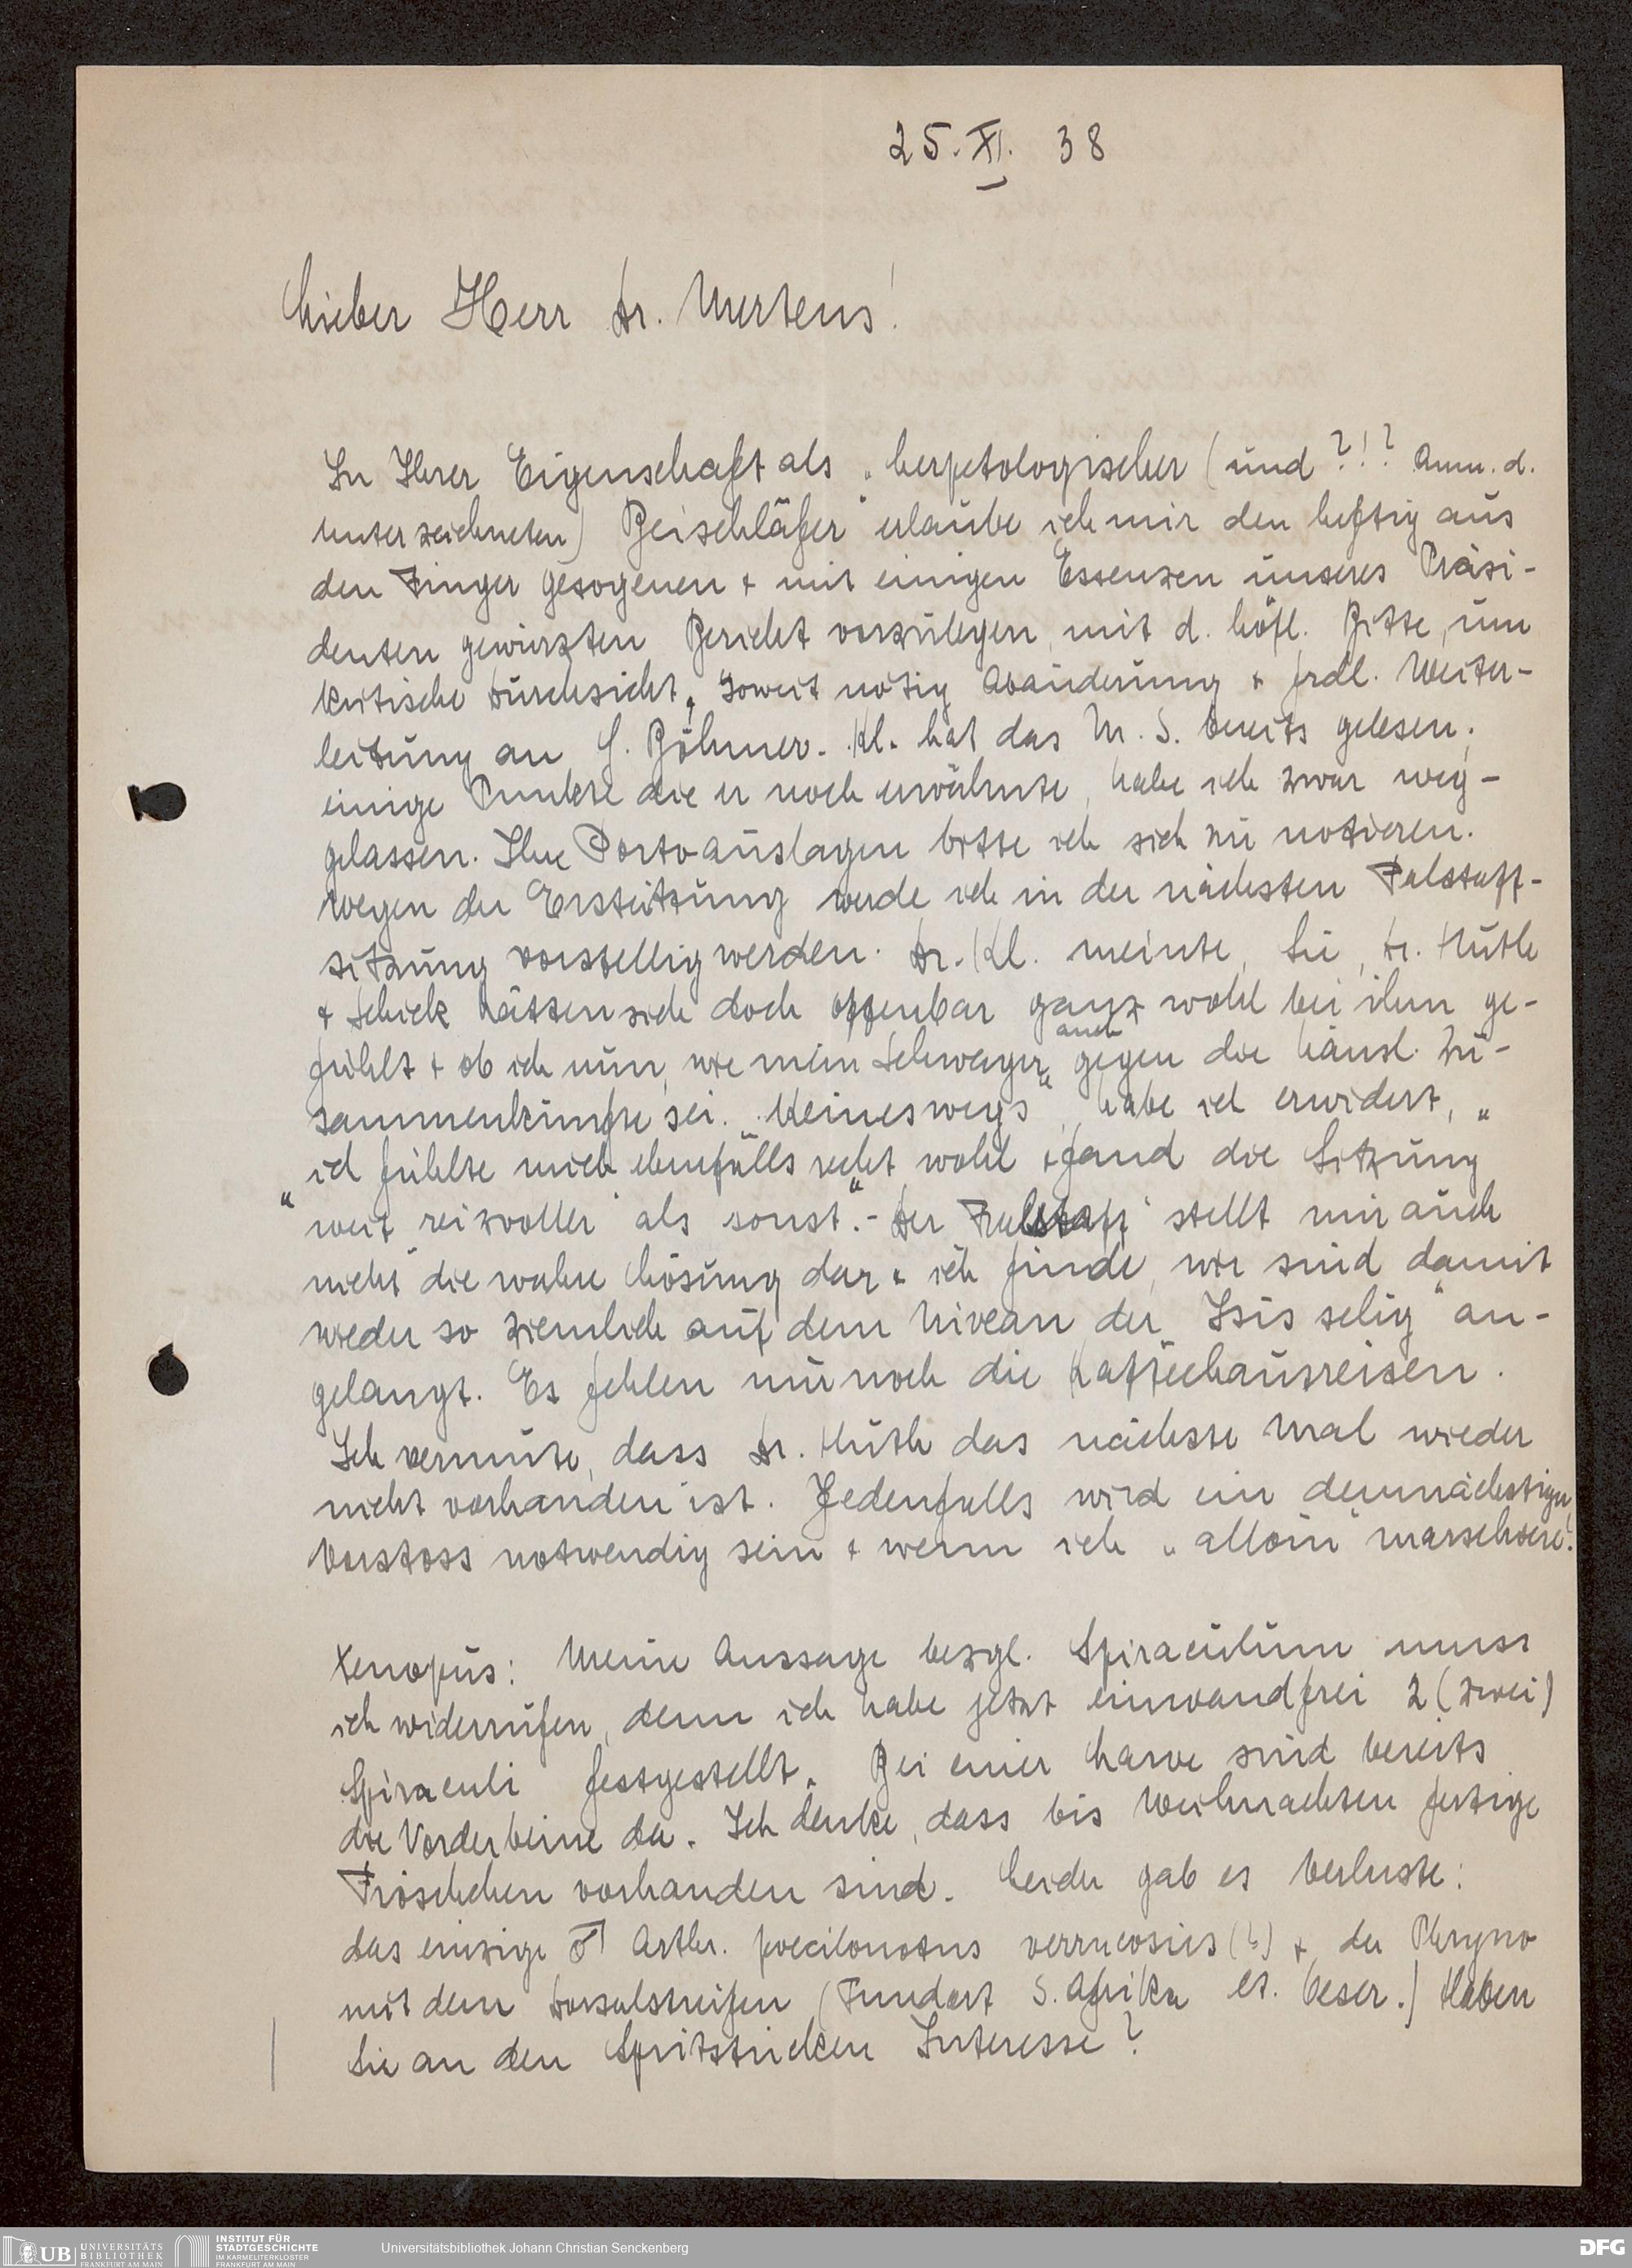 25. XI. 38
Lieber Herr Dr. Mertens!
In Ihrer Eigenschaft als „herpetologischer (und ?!? Anm. d.
Unterzeichneten) Beischläfer" erlaube ich mir den heftig aus
den Finger gesogenen & mit einigen Essenzen unseres Präsi-
denten gewürzten Bericht vorzulegen, mit d. höfl. Bitte, um
kritische Durchsicht, soweit nötig Abänderung & frdl. Weiter-
leitung an H. Böhmer. Kl. hat das M. S. bereits gelesen;
einige Punkte die er noch erwähnte, habe ich zwar weg-
gelassen. Ihre Portoauslagen bitte ich sich zu notieren.
Wegen der Erstattung werde ich in der nächsten Falstaff-
sitzung vorstellig werden. Dr. Kl. meinte, Sie, Dr. Huth
& Schick hätten sich doch offenbar ganz wohl bei ihm ge-
fühlt & ob ich nun, wie mein Schwager, auch gegen die häusl. Zu-
sammenkünfte sei. „Keineswegs", habe ich erwidert, „
ich fühlte mich ebenfalls recht wohl & fand die Sitzung
„weit reizvoller als sonst". - Der Falstaff stellt mir auch
nicht die wahre Lösung dar & ich finde, wir sind damit
wieder so ziemlich auf dem Niveau der „Isis selig" an-
gelangt. Es fehlen nur noch die Kaffeehausreisen.
Ich vermute, dass Dr. Huth das nächste Mal wieder
nicht vorhanden ist. Jedenfalls wird ein demnächstiger
Vorstoss notwendig sein & wenn ich „alloin" marschiere!
Xenopus: Meine Aussage bezgl. Spiraculum muss
ich widerrufen, denn ich habe jetzt einwandfrei 2 (zwei)
Spiraculi festgestellt. Bei einer Larve sind bereits
die Vorderbeine da. Ich denke, dass bis Weihnachten fertige
Fröschchen vorhanden sind. Leider gab es Verluste:
das einzige ♂ Arthr. poecilonotus verrucosus & der Phryno
mit dem Dorsalstreifen (Fundort S. Afrika lt. Geser.) Haben
Sie an den Spritstücken Interesse?
UB UNIVERSITÄTS
BIBLIOTHEK
FRANKFURT AM MAIN
INSTITUT FÜR
STADTGESCHICHTE
IM KARMELITERKLOSTER
FRANKFURT AM MAIN
Universitätsbibliothek Johann Christian Senckenberg
DFG